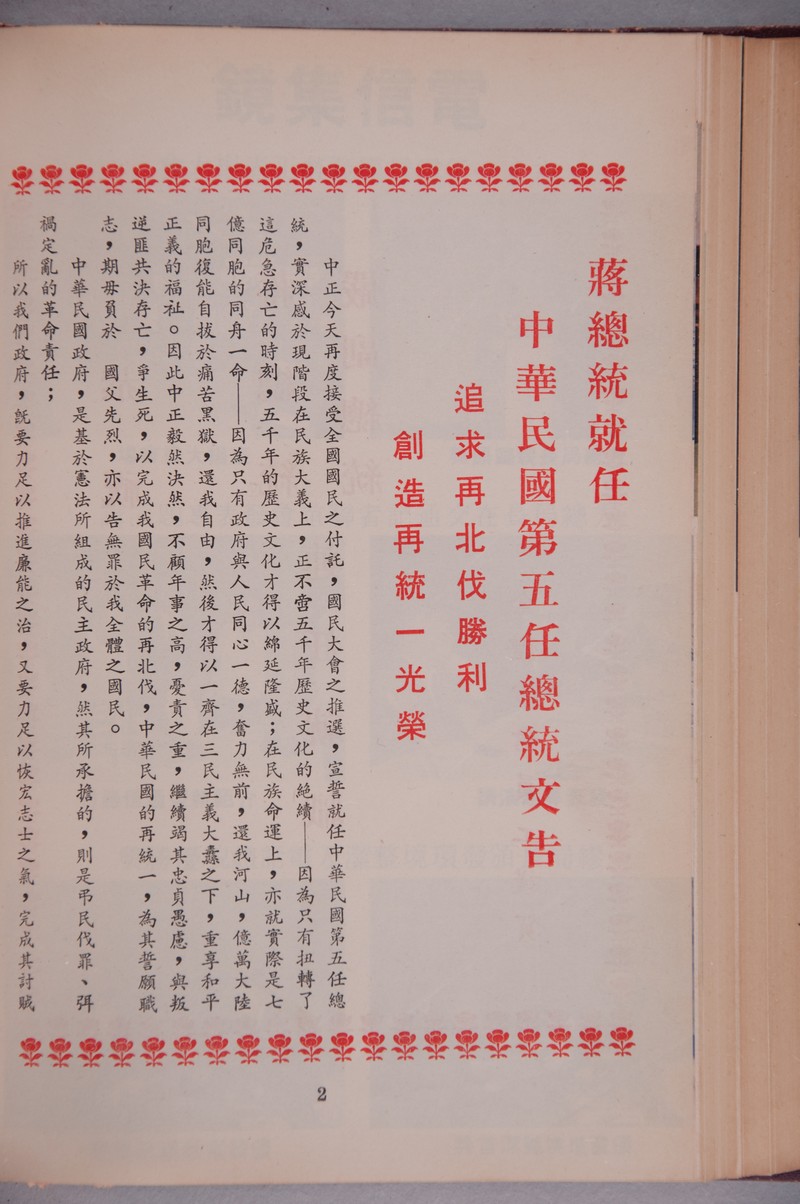 蔣總統就任
中華民國第五任總統文告
追求再北伐勝利
創造再統一光榮
中正今天再度接受全國國民之付託，國民大會之推選，宣誓就任中華民國第五任總
統，實深感於現階段在民族大義上，正不啻五千年歷史文化的絕續——因為只有扭轉了
這危急存亡的時刻，五千年的歷史文化才得以綿延隆盛；在民族命運上，亦就實際是七
億同胞的同舟一命——因為只有政府與人民同心一德，奮力無前，還我河山，億萬大陸
同胞復能自拔於痛苦黑獄，還我自由，然後才得以一齊在三民主義大纛之下，重享和平
正義的福祉。因此中正毅然決然，不顧年事之高，憂責之重，繼續竭其忠貞愚慮，與叛
逆匪共決存亡，爭生死，以完成我國民革命的再北伐，中華民國的再統一，為其誓願職
志，期毋負於　國父先烈，亦以告無罪於我全體之國民。
中華民國政府，是基於憲法所組成的民主政府，然其所承擔的，則是弔民伐罪、弭
禍定亂的革命責任；
所以我們政府，既要力足以推進廉能之治，又要力足以恢宏志士之氣，完成其討賊
2